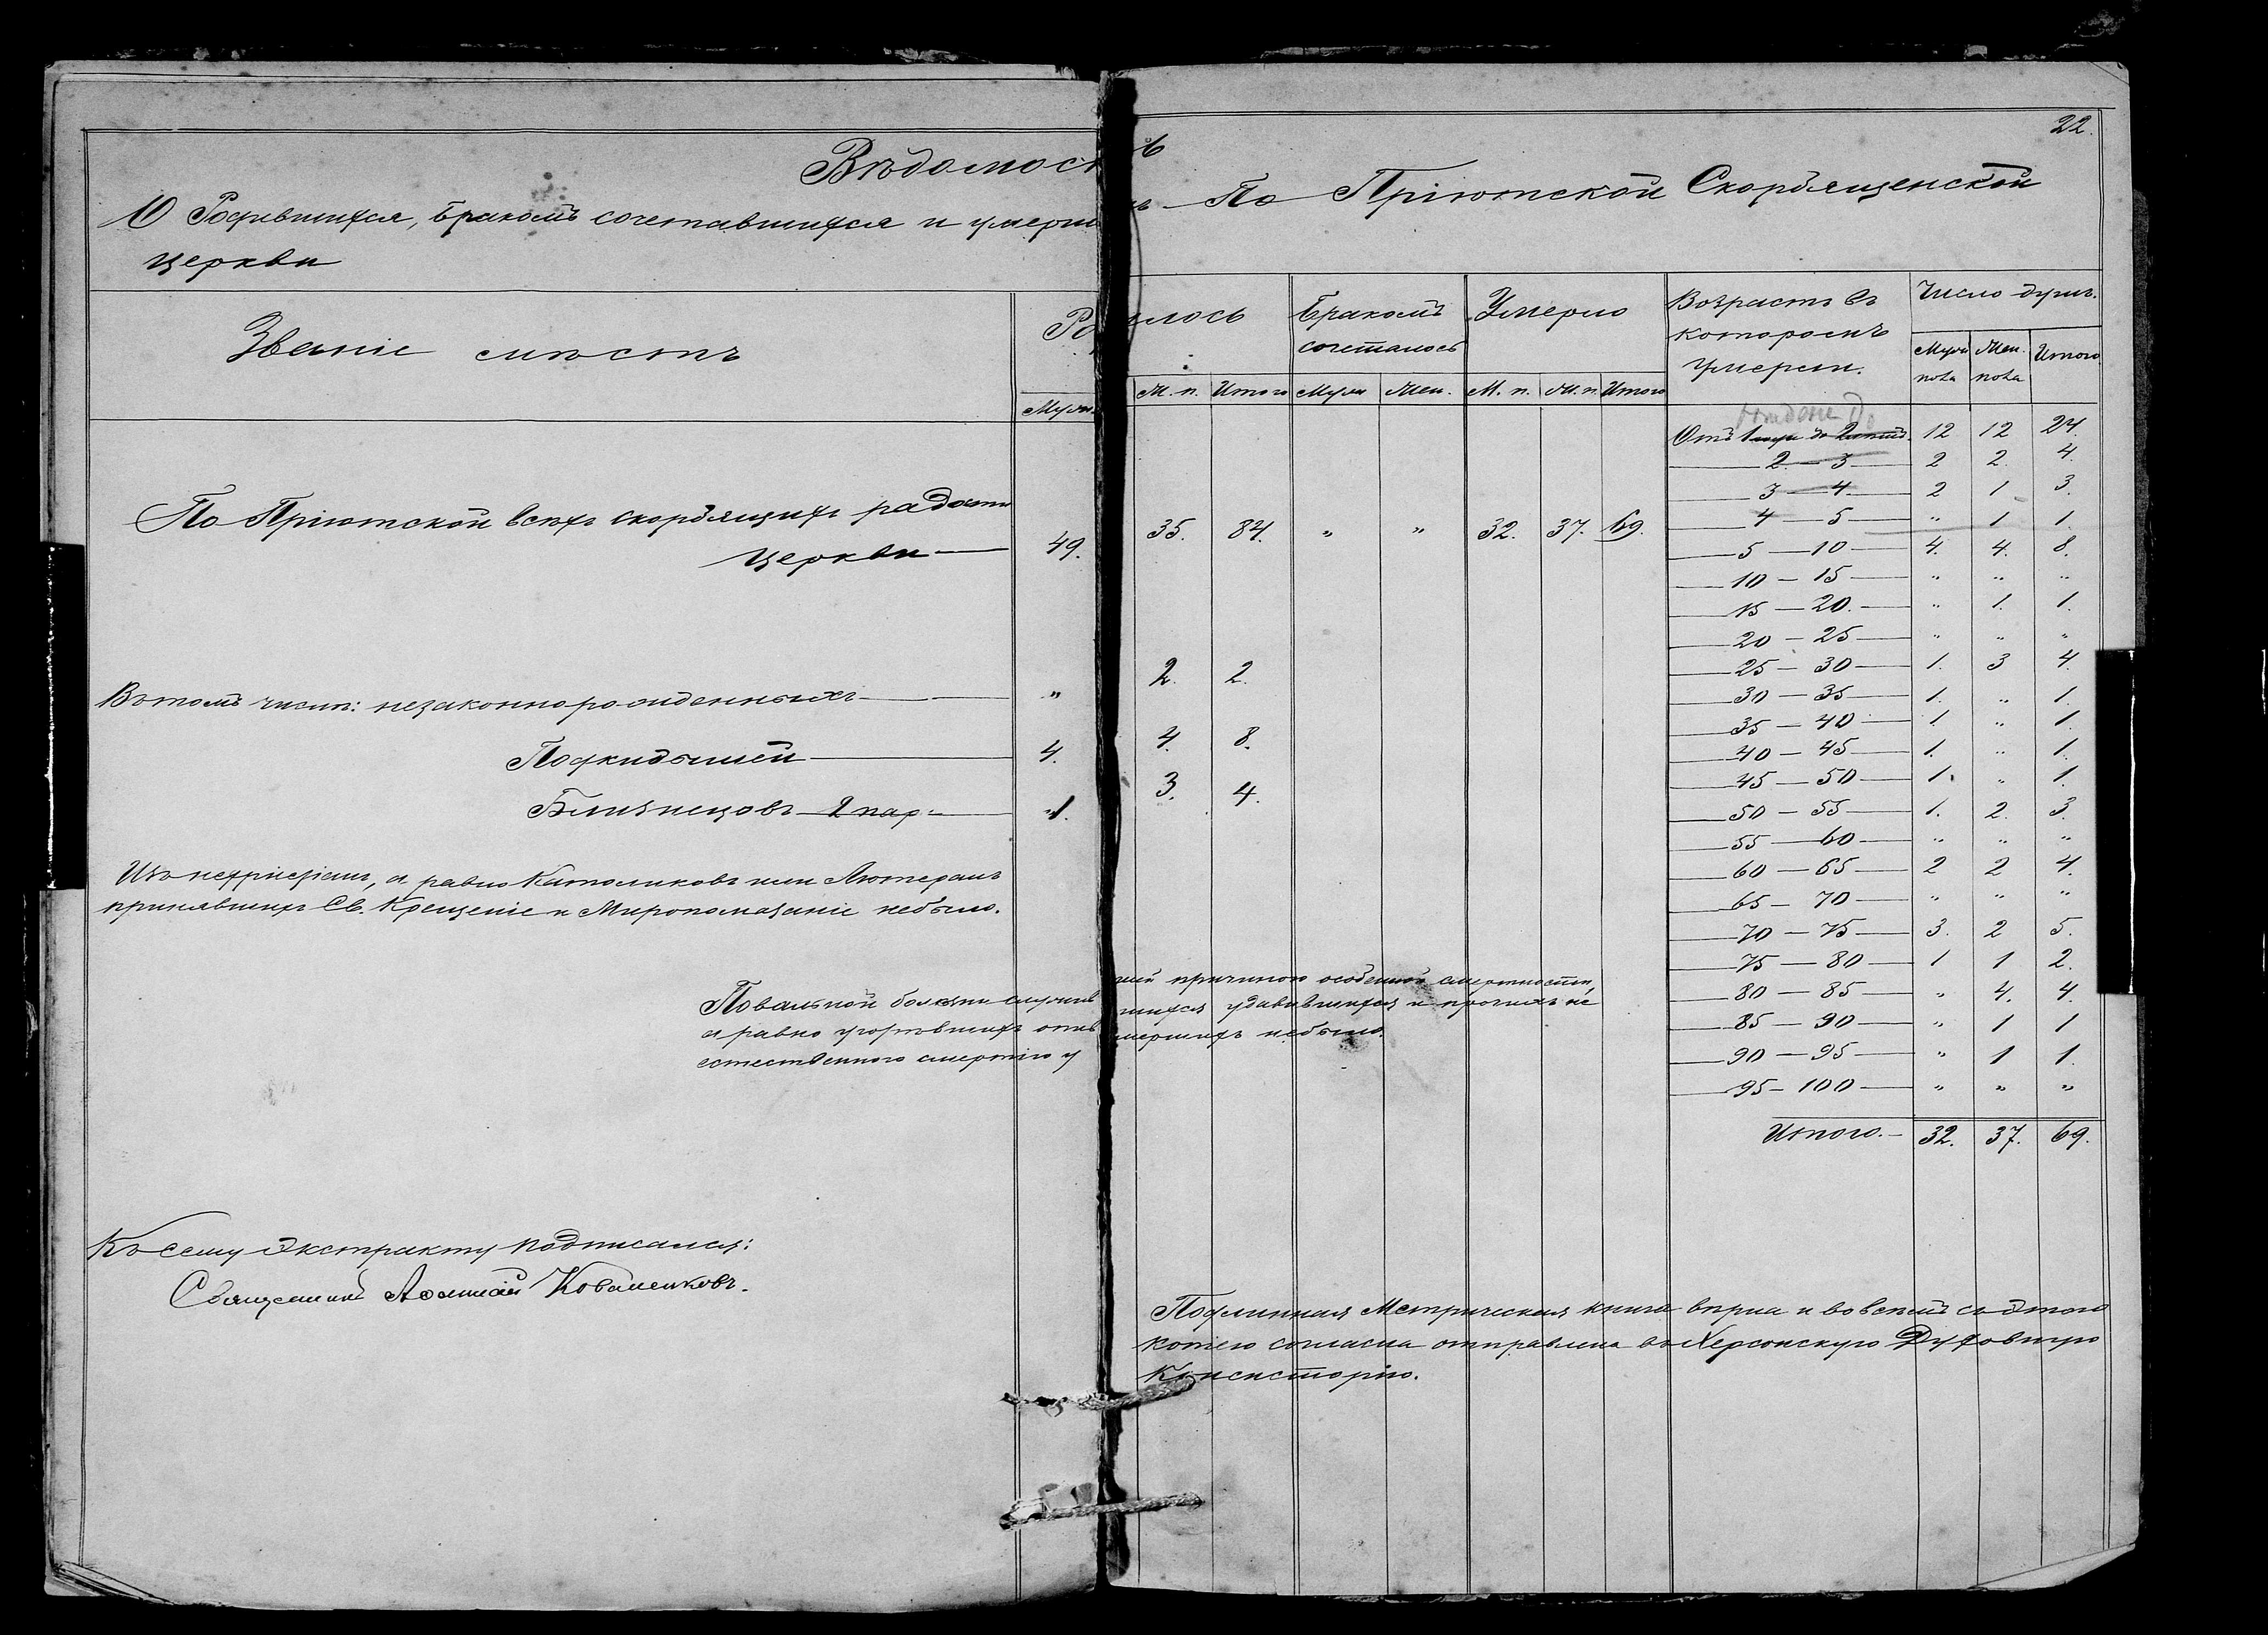 22.
Вѣдомость
О Родившихся, бракомъ сочетавшихся и умерш ъ По Пріютской Скорбященской
церкви
Званіе мѣстъ
Ро илось
Муж. М. п. Итого
Бракомъ
сочеталось
Муж Жен.
Умерло
М. п. Ж. п. Итого
Возрастъ въ
которомъ
умерли.
Число душъ.
Муж Жен. Итого
пола пола
По Пріютской всѣхъ скорбящихъ радости
церкви — 49. 35. 84. " " 32. 37. 69.
Въ томъ числѣ: незаконнорожденныхъ — " 2. 2.
Подкидышей — 4. 4. 8.
Близнецовъ 2 пар — 1. 3. 4.
Изъ нехристіанъ, а равно Католиковъ или Лютеранъ
принявшихъ Св. Крещеніе и Муропомазаніе небыло.
Повальной болѣзни служив шей причиною особенной смертности,
а равно угорѣвшихъ опив шихся удавившихся и прочихъ не
естественного смертію у мершихъ небыло.
Отъ 1 до 2 12 12 24.
2 — 3 2 2. 4.
3 — 4 2 1 3.
4 — 5 " 1 1.
5 — 10 4. 4. 8.
10 — 15 " " "
15 — 20. " 1. 1.
20 — 25 " " "
25 — 30 1. 3 4.
30 — 35 1. " 1.
35 — 40 1. " 1.
40 — 45 1. " 1.
45 — 50 1. " 1.
50 — 55 1. 2. 3.
55 — 60 " " "
60 — 65 2 2 4.
65 — 70 " " "
70 — 75 3. 2 5.
75 — 80 1 1 2.
80 — 85 " 4. 4.
85 — 90 " 1 1
90 — 95 " 1 1.
95 — 100 " " "
Итого. — 32. 37. 69.
Къ сему экстракту подписался:
Священникъ Коваленковъ.
Подлинная Метрическая книга вѣрна и во всемъ съ этого
копіею согласна отправлена въ Херсонскую Духовную
Консисторію.